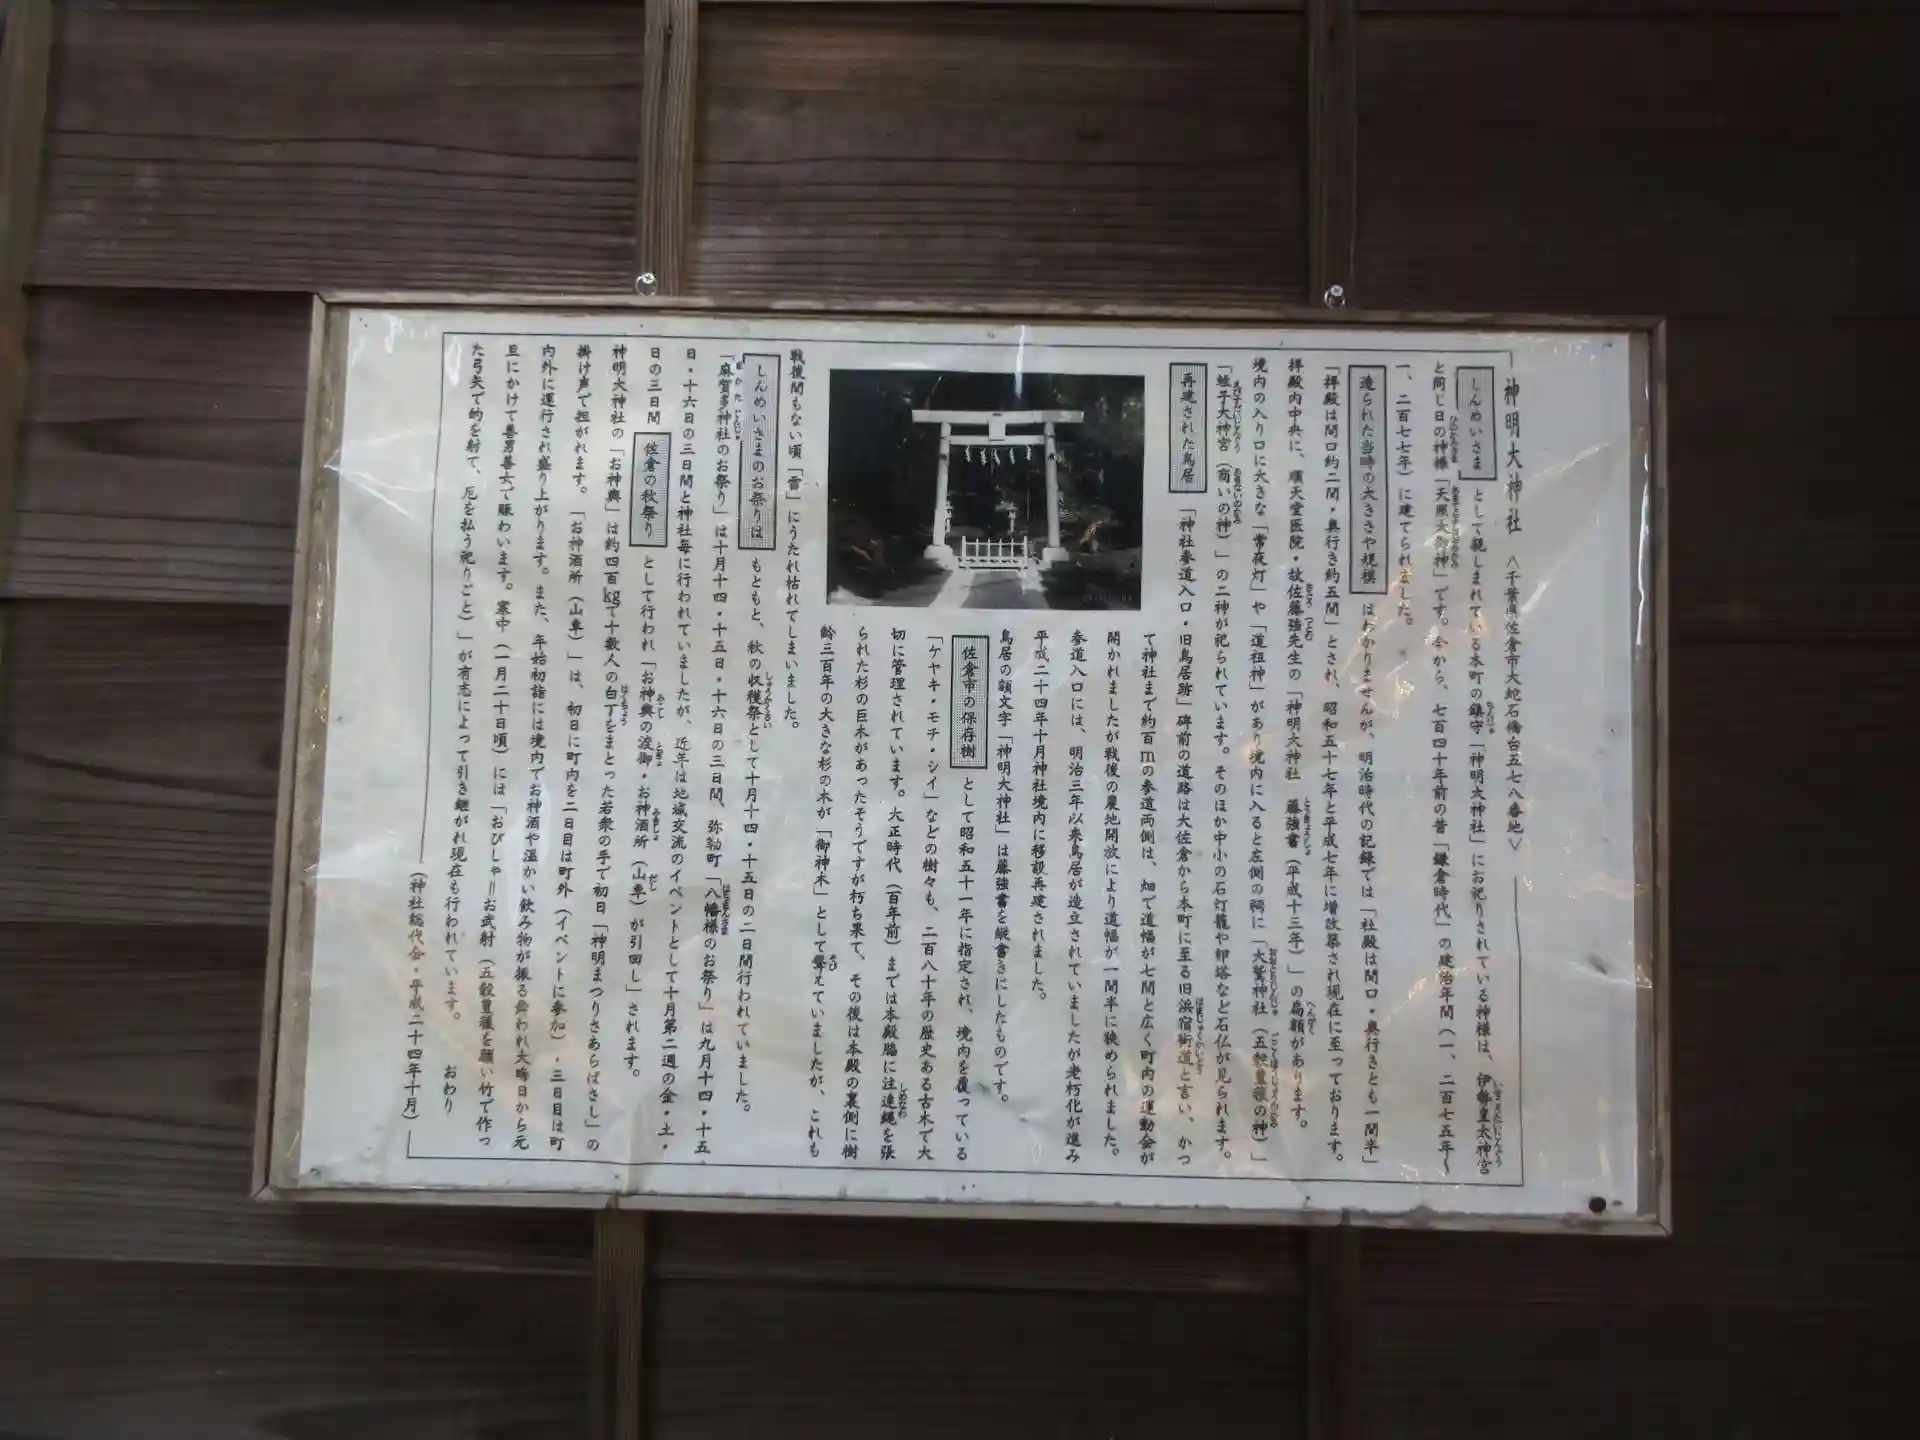 神明大神社 〈千葉県佐倉市大蛇石橋台五七八番地〉
しんめいさま として親しまれている本町の鎮守「神明大神社」にお祀りされている神様は、伊勢皇太神宮
と同じ日の神様「天照大御神」です。今から、七百四十年前の昔「鎌倉時代」の建治年間（一、二百七五年〜
一、二百七七年）に建てられました。
造られた当時の大きさや規模 はわかりませんが、明治時代の記録では「社殿は間口・奥行きとも一間半」
「拝殿は間口約二間・奥行き約五間」とされ、昭和五十七年と平成七年に増改築され現在に至っております。
拝殿内中央に、順天堂医院・故佐藤強先生の「神明大神社 藤強書（平成十三年）」の扁額があります。
境内の入り口に大きな「常夜灯」や「道祖神」があり境内に入ると左側の祠に「大鷲神社（五穀豊穣の神）」
「蛭子大神宮（商いの神）」の二神が祀られています。そのほか中小の石灯籠や卵塔など石仏が見られます。
再建された鳥居 「神社参道入口・旧鳥居跡」碑前の道路は大佐倉から本町に至る旧浜宿街道と言い、かつ
て神社まで約百ｍの参道両側は、畑で道幅が七間と広く町内の運動会が
開かれましたが戦後の農地開放により道幅が一間半に狭められました。
参道入口には、明治三年以来鳥居が造立されていましたが老朽化が進み
平成二十四年十月神社境内に移設再建されました。
鳥居の額文字「神明大神社」は藤強書を縦書きにしたものです。
佐倉市の保存樹 として昭和五十一年に指定され、境内を覆っている
「ケヤキ・モチ・シイ」などの樹々も、二百八十年の歴史ある古木で大
切に管理されています。大正時代（百年前）までは本殿脇に注連縄を張
られた杉の巨木があったそうですが朽ち果て、その後は本殿の裏側に樹
齢三百年の大きな杉の木が「御神木」として聳えていましたが、これも
戦後間もない頃「雷」にうたれ枯れてしまいました。
しんめいさまのお祭りは もともと、秋の収穫祭として十月十四・十五日の二日間行われていました。
「麻賀多神社のお祭り」は十月十四・十五日・十六日の三日間、弥勒町「八幡様のお祭り」は九月十四・十五
日・十六日の三日間と神社毎に行われていましたが、近年は地域交流のイベントとして十月第二週の金・土・
日の三日間 佐倉の秋祭り として行われ「お神輿の渡御・お神酒所（山車）が引回し」されます。
神明大神社の「お神輿」は約四百kgで十数人の白丁をまとった若衆の手で初日「神明まつりさあらばさし」の
掛け声で担がれます。「お神酒所（山車）」は、初日に町内を二日目は町外（イベントに参加）・三日目は町
内外に運行され盛り上がります。また、年始初詣には境内でお神酒や温かい飲み物が振る舞われ大晦日から元
旦にかけて善男善女で賑わいます。寒中（一月二十日頃）には「おびしゃ＝お武射（五穀豊穣を願い竹で作っ
た弓矢で的を射て、厄を払う祀りごと）」が有志によって引き継がれ現在も行われています。 おわり
（神社総代会・平成二十四年十月）